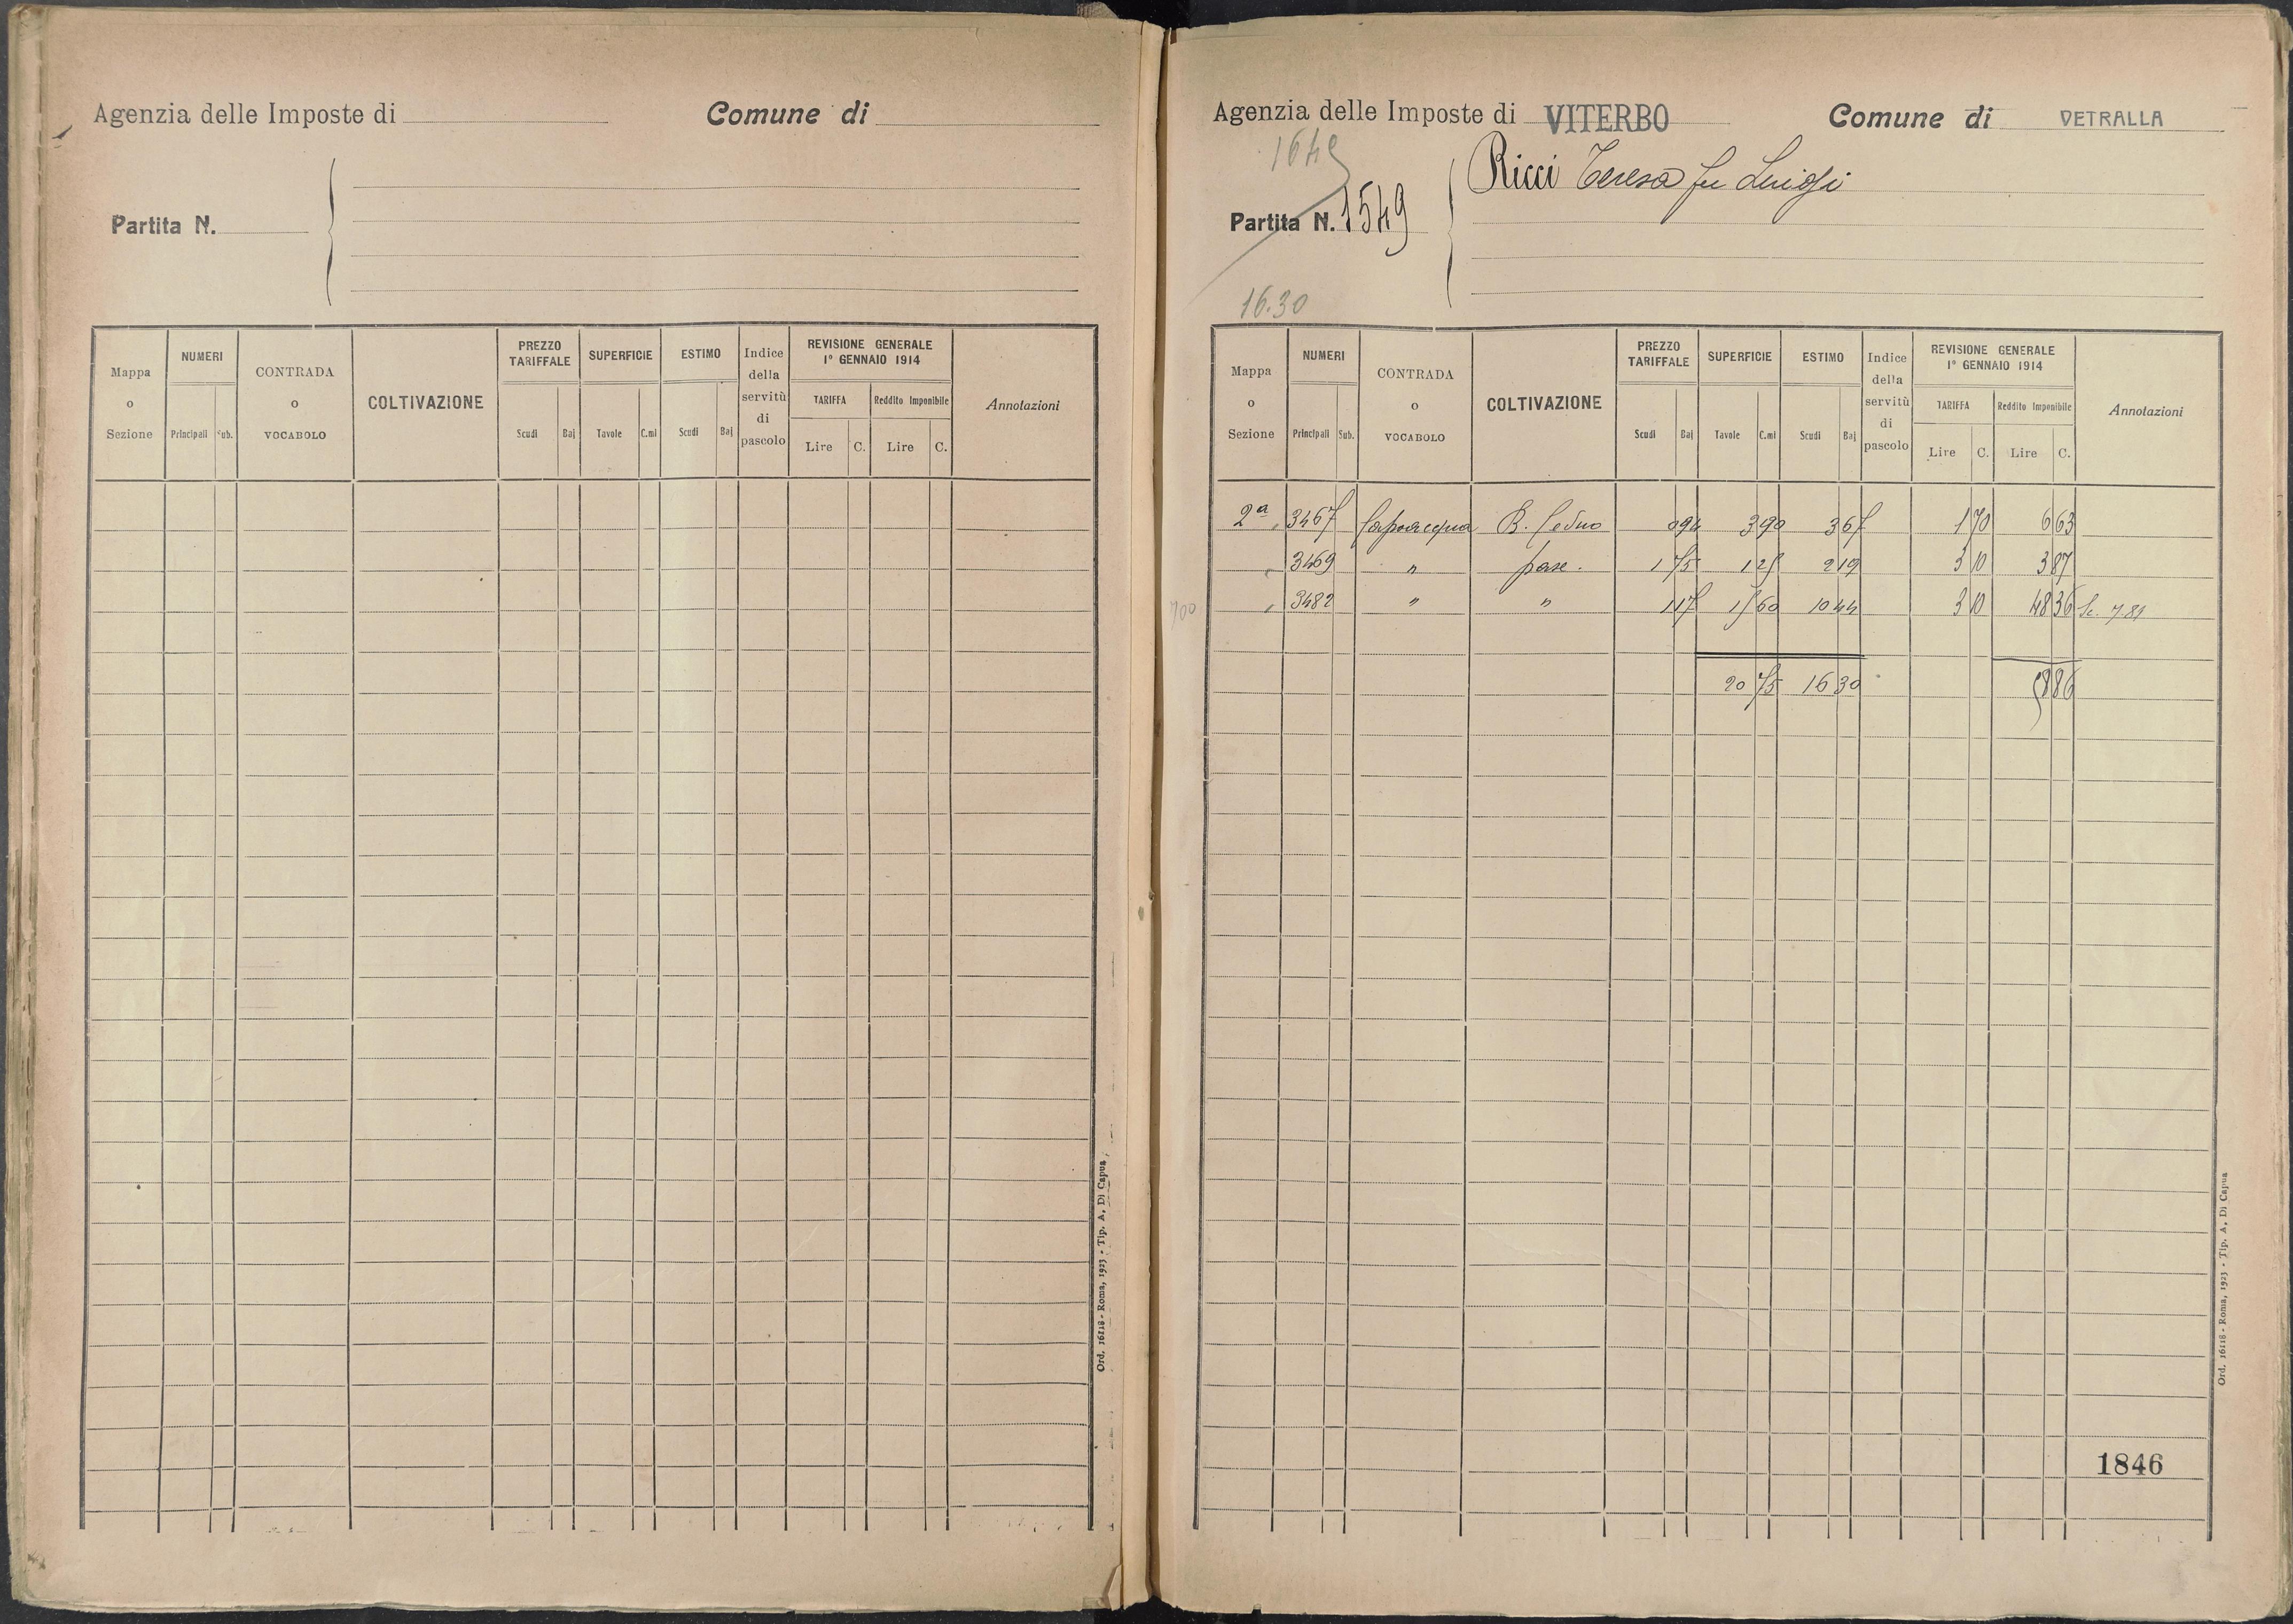 Agenzia delle Imposte di Comune di
Partita N.
Mappa o Sezione NUMERI Principali Sub. CONTRADA o VOCABOLO COLTIVAZIONE PREZZO TARIFFALE Scudi Baj SUPERFICIE Tavole C.mi ESTIMO Scudi Baj Indice della servitù di pascolo REVISIONE GENERALE 1° GENNAIO 1914 TARIFFA Lire C. Reddito Imponibile Lire C. Annotazioni
Ord. 16118 - Roma, 1923 - Tip. A. Di Capua
Agenzia delle Imposte di VITERBO Comune di VETRALLA
1649
Ricci Teresa fu Luigi
Partita N. 1549
16.30
Mappa o Sezione NUMERI Principali Sub. CONTRADA o VOCABOLO COLTIVAZIONE PREZZO TARIFFALE Scudi Baj SUPERFICIE Tavole C.mi ESTIMO Scudi Baj Indice della servitù di pascolo REVISIONE GENERALE 1° GENNAIO 1914 TARIFFA Lire C. Reddito Imponibile Lire C. Annotazioni
2a 3467 Capoacqua B. Ceduo 0 94 3 90 3 67 1 70 6 63
" 3469 " pasc. 1 75 1 25 2 19 3 10 3 87
700 " 3482 " " 15 60 10 44 3 10 48 36 Sc. 7.81
20 75 16 30 58 86
1846
Ord. 16118 - Roma, 1923 - Tip. A. Di Capua